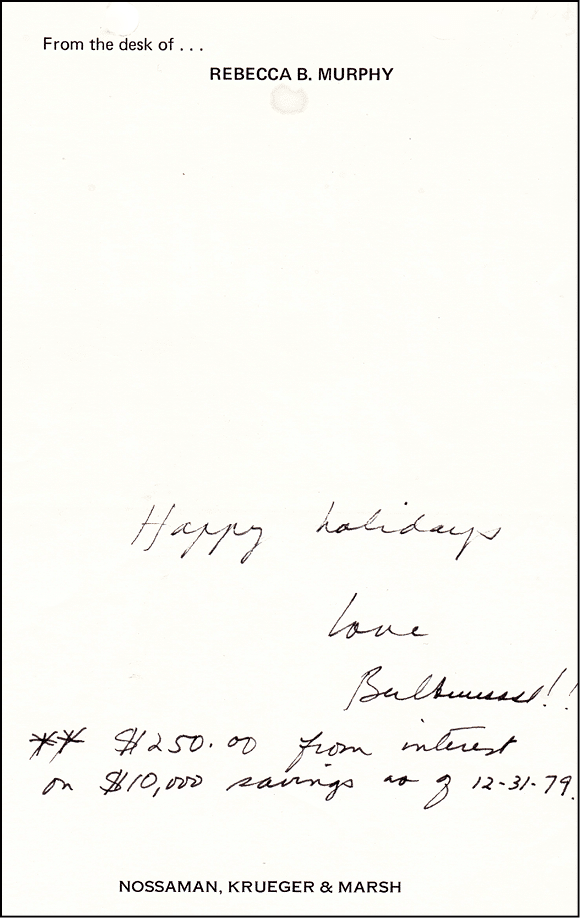 From the desk of . . .
REBECCA B. MURPHY
Happy holidays
Love
** $250.00 from interest
on $10,000 savings as of 12-31-79.
NOSSAMAN, KRUEGER & MARSH